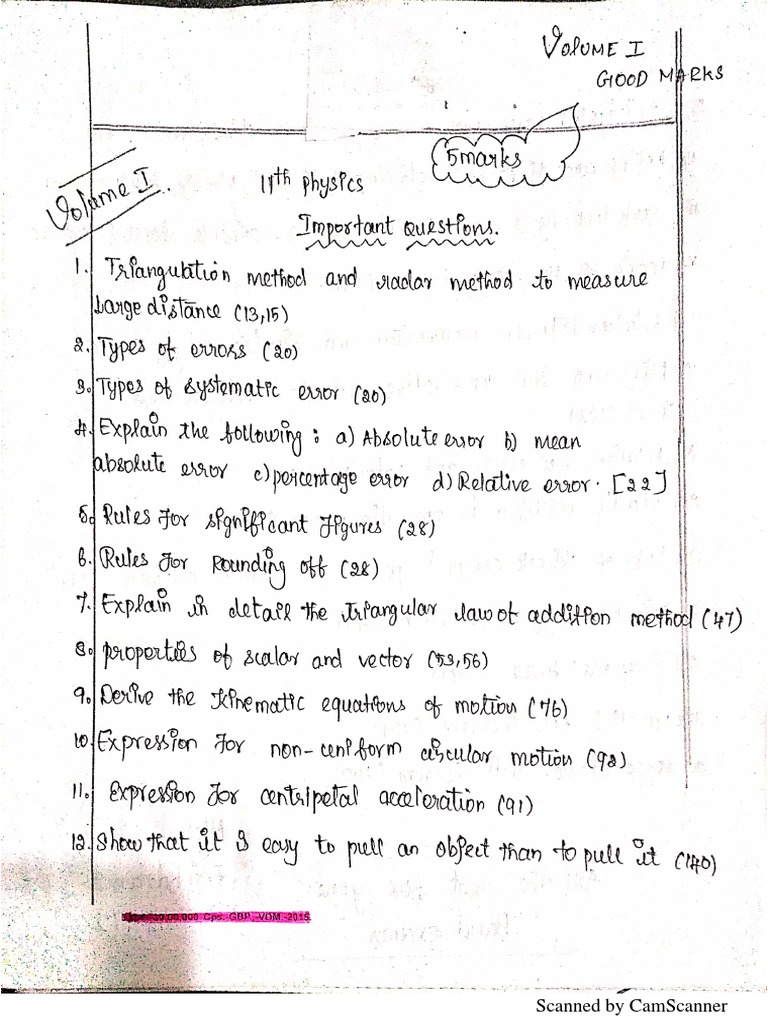 Volume I
GOOD MARKS
5marks
Volume I..
11th physics
Important Questions.
1. Triangulation method and radar method to measure
Large distance (13,15)
2. Types of errors (20)
3. Types of systematic error (20)
4. Explain the following : a) Absolute error b) mean
absolute error c) percentage error d) Relative error. [22]
5. Rules for significant figures (28)
6. Rules for Rounding off (28)
7. Explain in detail the triangular law of addition method (47)
8. properties of scalar and vector (53,56)
9. Derive the kinematic equations of motion (76)
10. Expression for non-uniform circular motion (92)
11. Expression for centripetal acceleration (91)
12. Show that it is easy to pull an object than to pull it (140)
Cps. GBP.-VDM -2015
Scanned by CamScanner